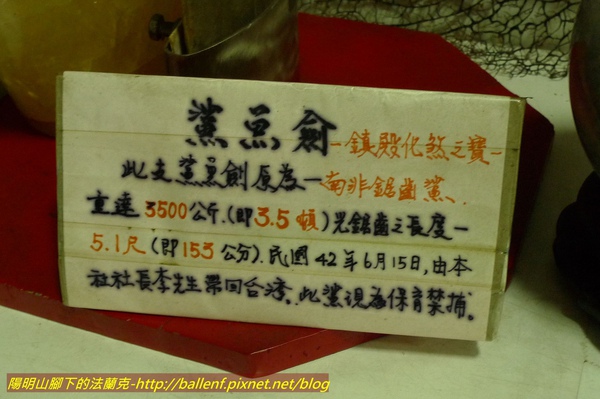 鯊魚劍 -鎮殿化煞之寶-
此支鯊魚劍原為一南非鋸齒鯊、
重達3500公斤.(即3.5頓)光鋸齒之長度一
5.1尺(即153公分).民國42年6月15日,由本
社社長李先生帶回台湾。此鯊現為保育禁捕。
陽明山腳下的法蘭克-http://ballenf.pixnet.net/blog